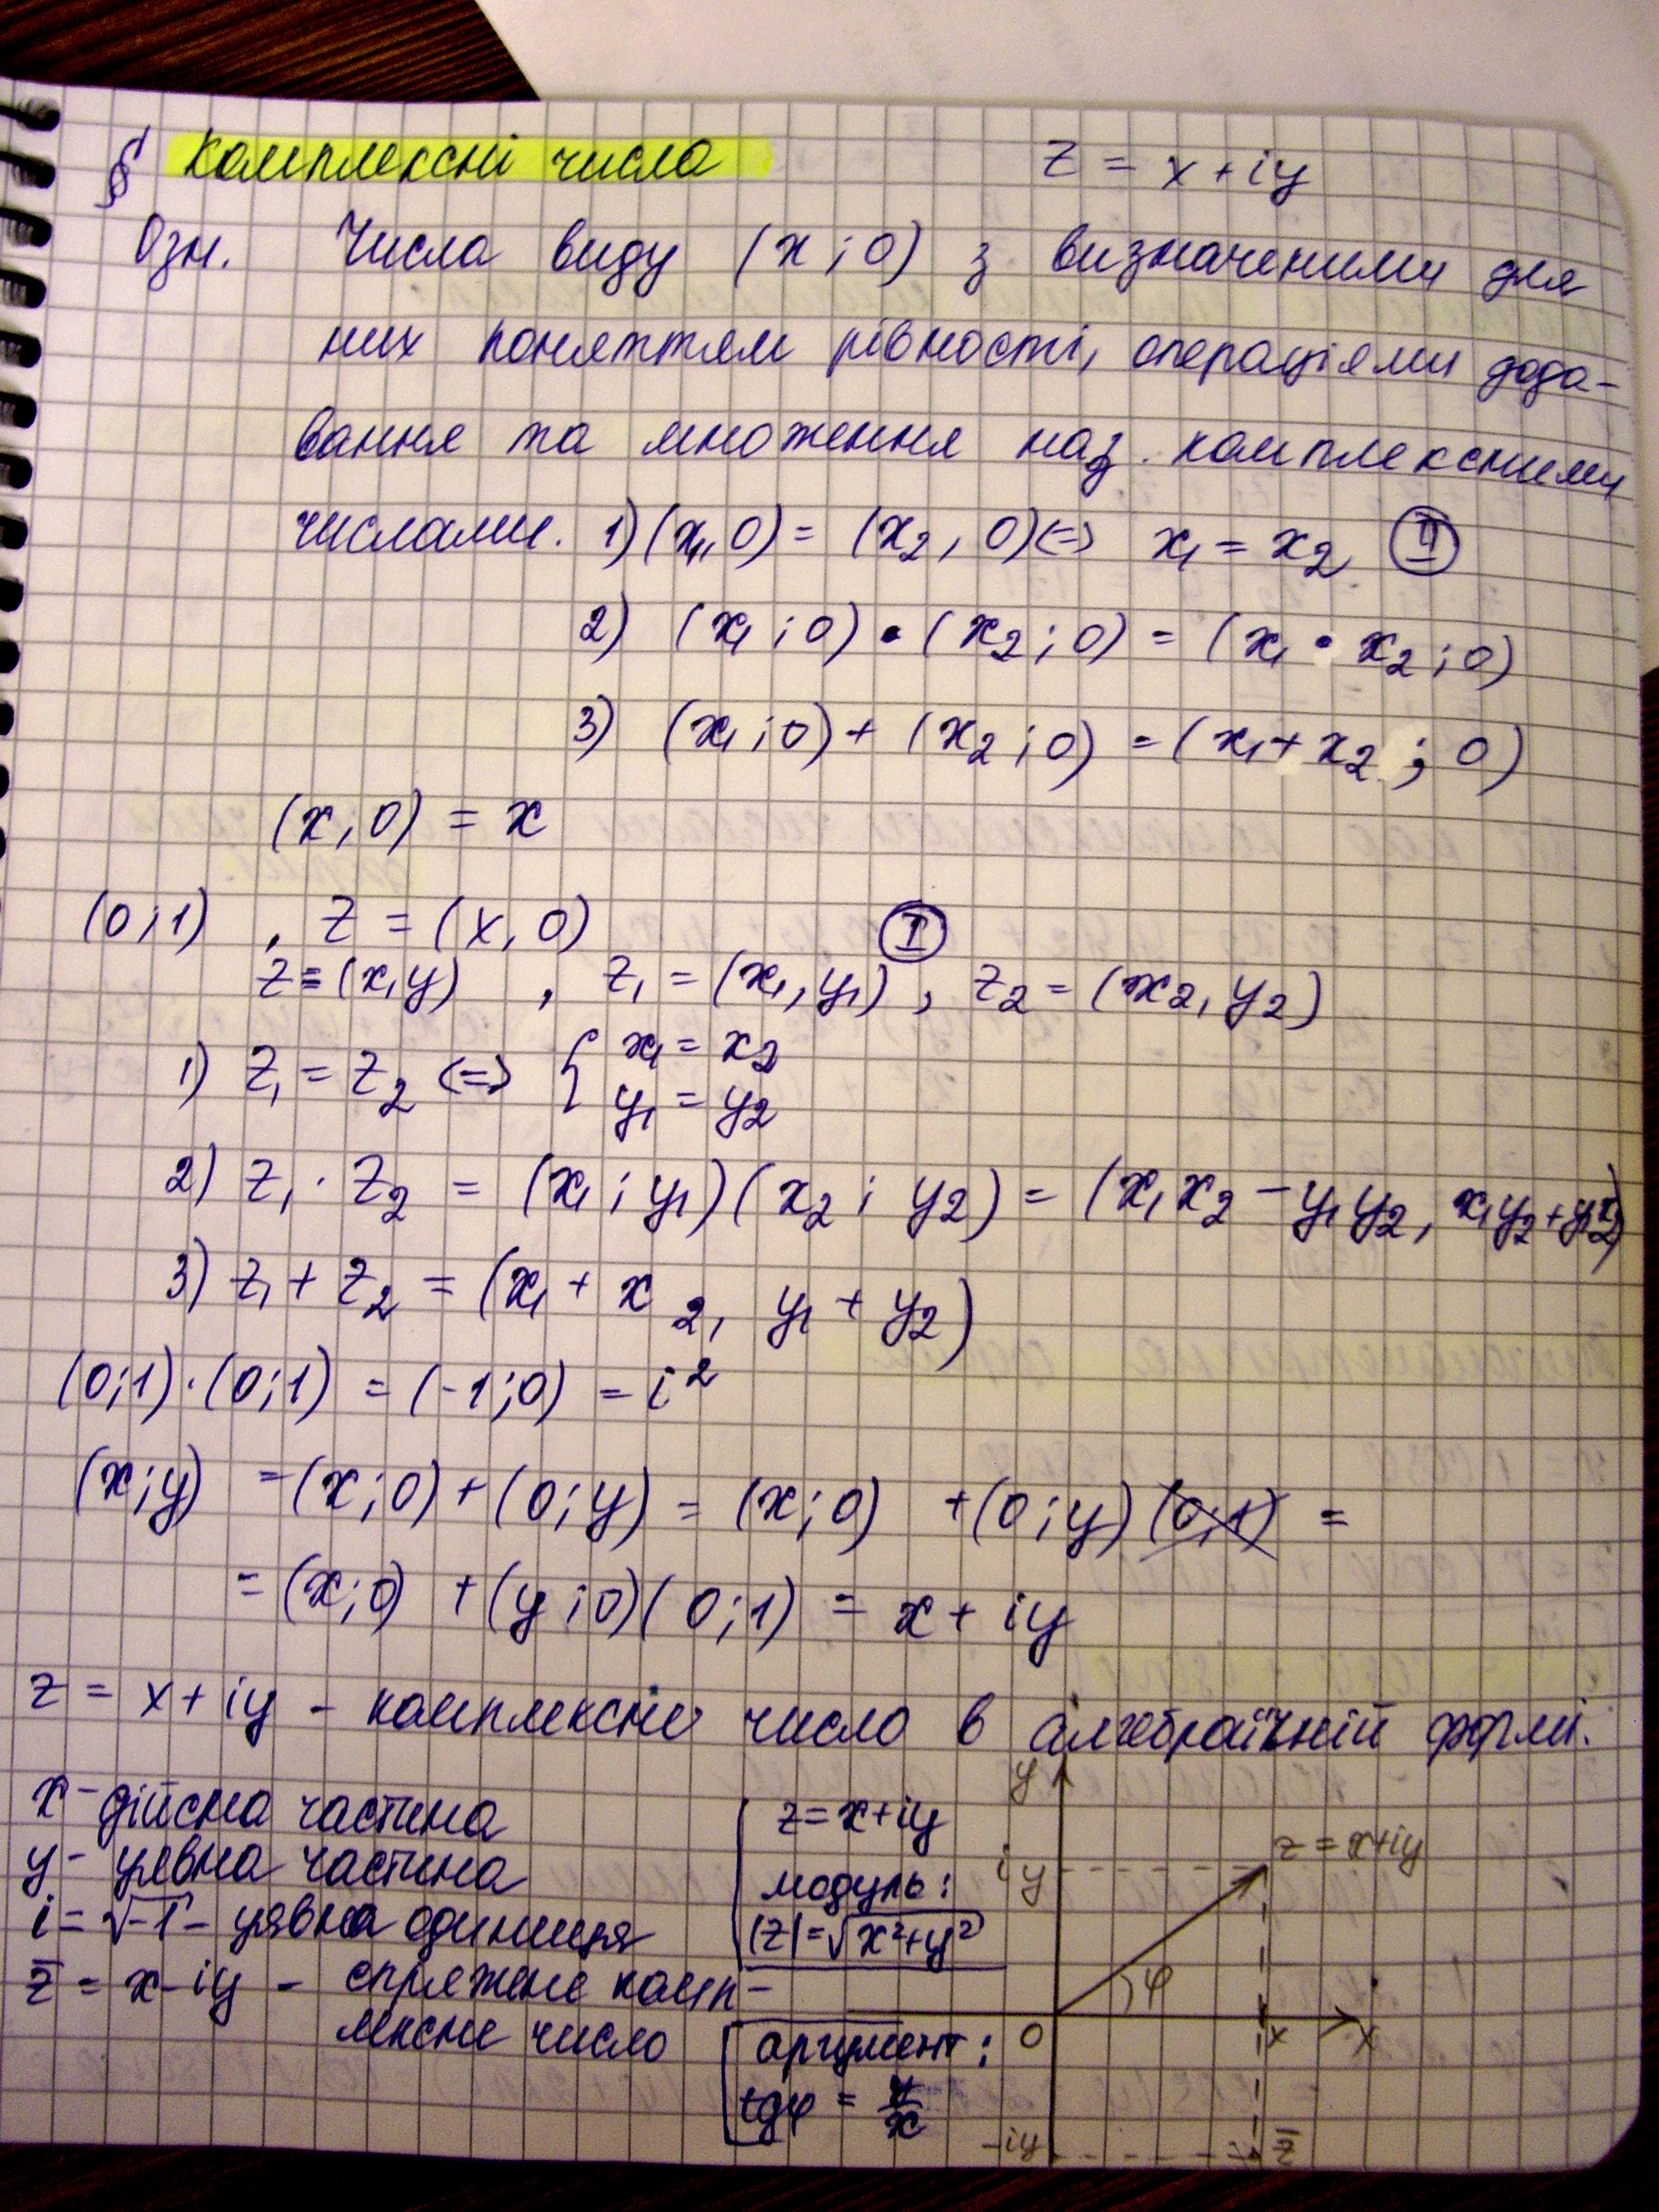 § Комплексні числа z = x + iy
Озн. Числа виду (x ; 0) з визначеними для
них поняттям рівності, операціями дода-
вання та множення наз. комплексними
числами. 1) (x₁, 0) = (x₂, 0) <=> x₁ = x₂ II
2) (x₁ ; 0) • (x₂ ; 0) = (x₁ • x₂ ; 0)
3) (x₁ ; 0) + (x₂ ; 0) = (x₁ + x₂ ; 0)
(x, 0) = x
(0 ; 1) , z = (x, 0) I
z = (x, y) , z₁ = (x₁, y₁) , z₂ = (x₂, y₂)
1) z₁ = z₂ <=> { x₁ = x₂
y₁ = y₂
2) z₁ · z₂ = (x₁ ; y₁)(x₂ ; y₂) = (x₁x₂ - y₁y₂, x₁y₂ + y₁x₂)
3) z₁ + z₂ = (x₁ + x₂, y₁ + y₂)
(0;1) · (0;1) = (-1;0) = i²
(x;y) = (x;0) + (0;y) = (x;0) + (0;y) (0;1) =
= (x;0) + (y;0)(0;1) = x + iy
z = x + iy - комплексне число в алгебраїчній формі.
x - дійсна частина
y - уявна частина
i = √-1 - уявна одиниця
z̅ = x - iy - спряжене комп-
лексне число
z = x + iy
модуль:
|z| = √x² + y²
аргумент:
tgφ = y/x
y
iy
z = x + iy
φ
0 x x
-iy z̅